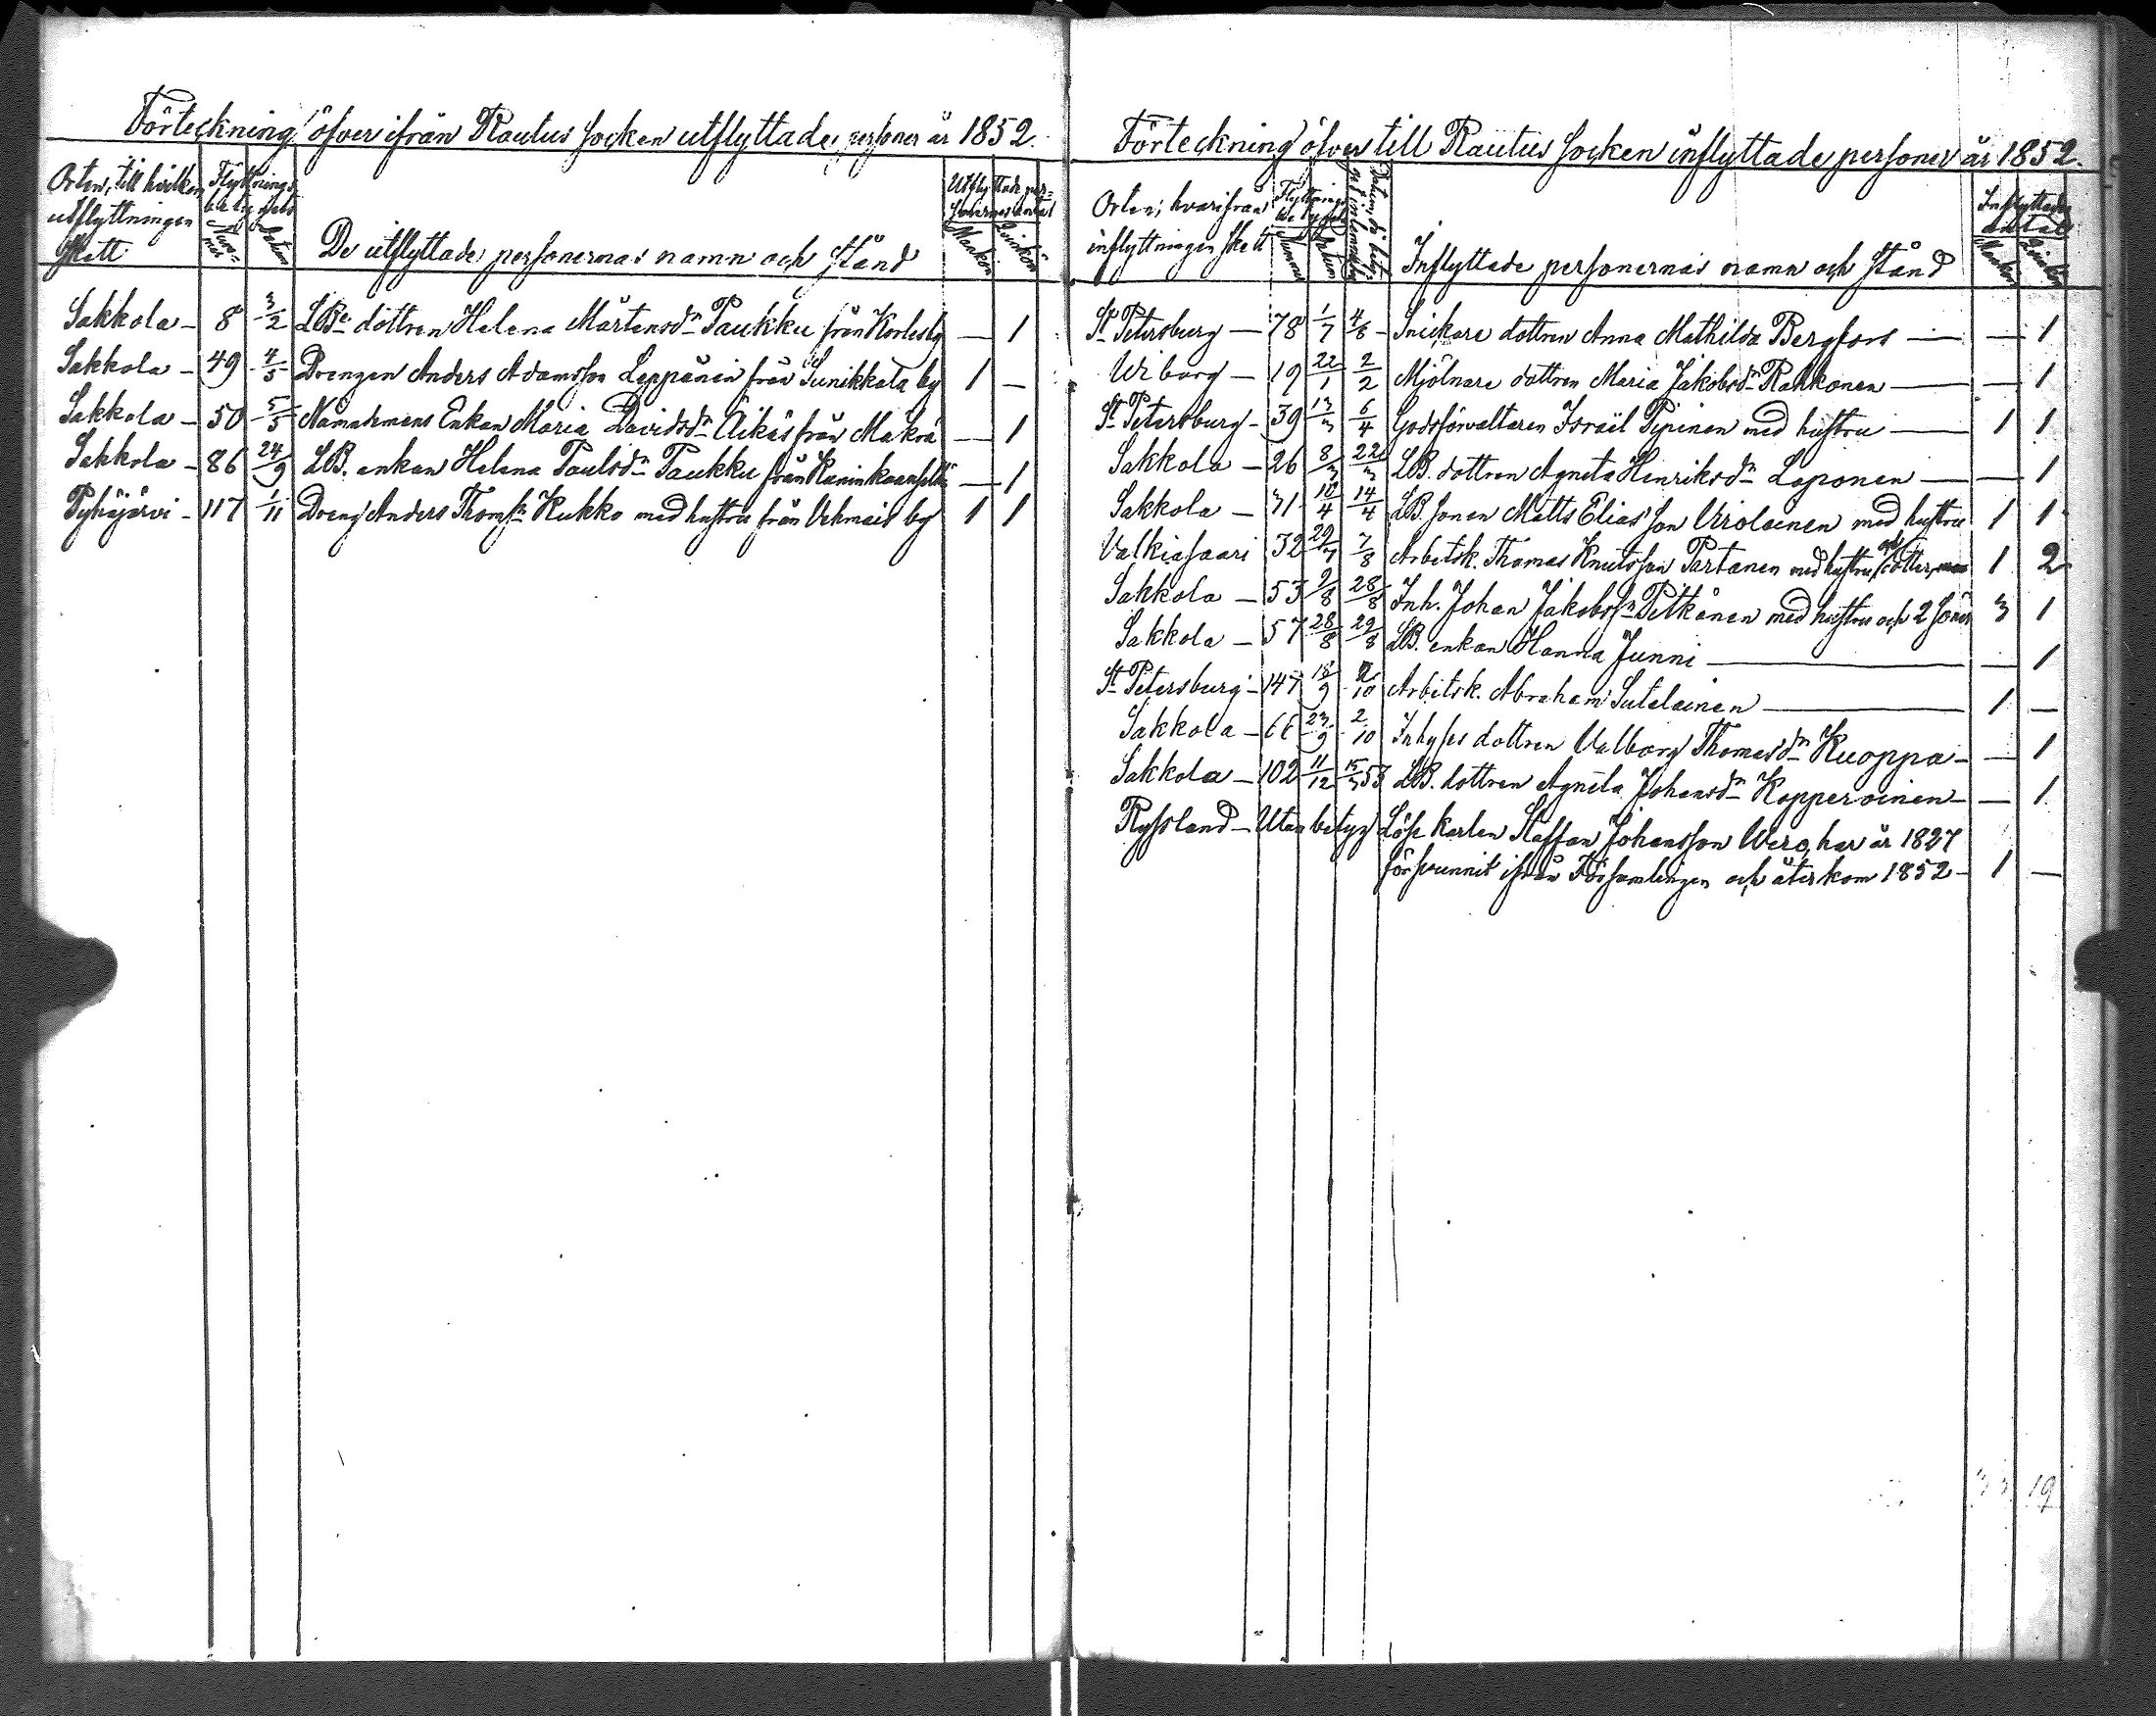 Förteckning öfver ifrån Rautus socken utflyttade personer år 1852.
Orten, till hvilken utflyttningen skett
Flyttnings betygets
Nummer
Datum
De utflyttade personernas namn och stånd
Utflyttade personernas antal
Mankön
Qvinkön
Sakkola - 8 3/2 LBe dottren Helena Mårtensdn Paukku från Korlesby — 1
Sakkola - 49 4/5 Drengen Anders Adamsson Leppänen från Sunikkala by 1 —
Sakkola - 50 5/5 Enkan Maria Davidsdn Äikäs från Makrä — 1
Sakkola - 86 24/9 LB. enkan Helena Paulsdn Paukku från — 1
Pyhäjärvi - 117 1/11 Dreng Anders Thomsn Kukko med hustru från Vehmais by 1 1
Förteckning öfver till Rautus socken inflyttade personer år 1852.
Orten, hvarifrån inflyttningen skett
Flyttnings betygets
Nummer
Datum
Inflyttade personernas namn och stånd
Inflyttades antal
Mankön
Qvinkön
St Petersburg — 78 1/7 4/8 - Snickare dottren Anna Mathilda Bergfors — — 1
Wiborg — 19 22/1 2/2 Mjölnare dottren Maria Jakobsdn Rahkonen — — 1
St Petersburg - 39 13/3 6/4 Godsförvaltaren Israël Pipinen med hustru — 1 1
Sakkola — 26 8/3 22/3 LB. dottren Agneta Henriksdn Loponen — — 1
Sakkola — 31 10/4 14/4 LB. sonen Matts Eliasson Virolainen med hustru 1 1
Valkiasaari 32 29/7 7/8 Arbetsk. Thomas Knutsson Partanen med hustru och dotter, 1 2
Sakkola — 53 2/8 28/8 Inh. Johan Jakobssn Pitkänen med hustru och 2 söner 3 1
Sakkola — 57 28/8 29/8 LB. enkan Hanna Junni — — 1
St Petersburg - 147 18/9 2/10 Arbetsk. Abraham Sutelainen — 1 —
Sakkola — 66 23/9 2/10 Inhyses dottren Valborg Thomasdn Kuoppa — — 1
Sakkola — 102 11/12 15/3 53 LB. dottren Agneta Johansdn Kopperoinen — — 1.
Ryssland — Utan betyg Löse karlen Staffan Johansson Wiro, har år 1827
försvunnit ifrån Församlingen och återkom 1852 — 1 —
19